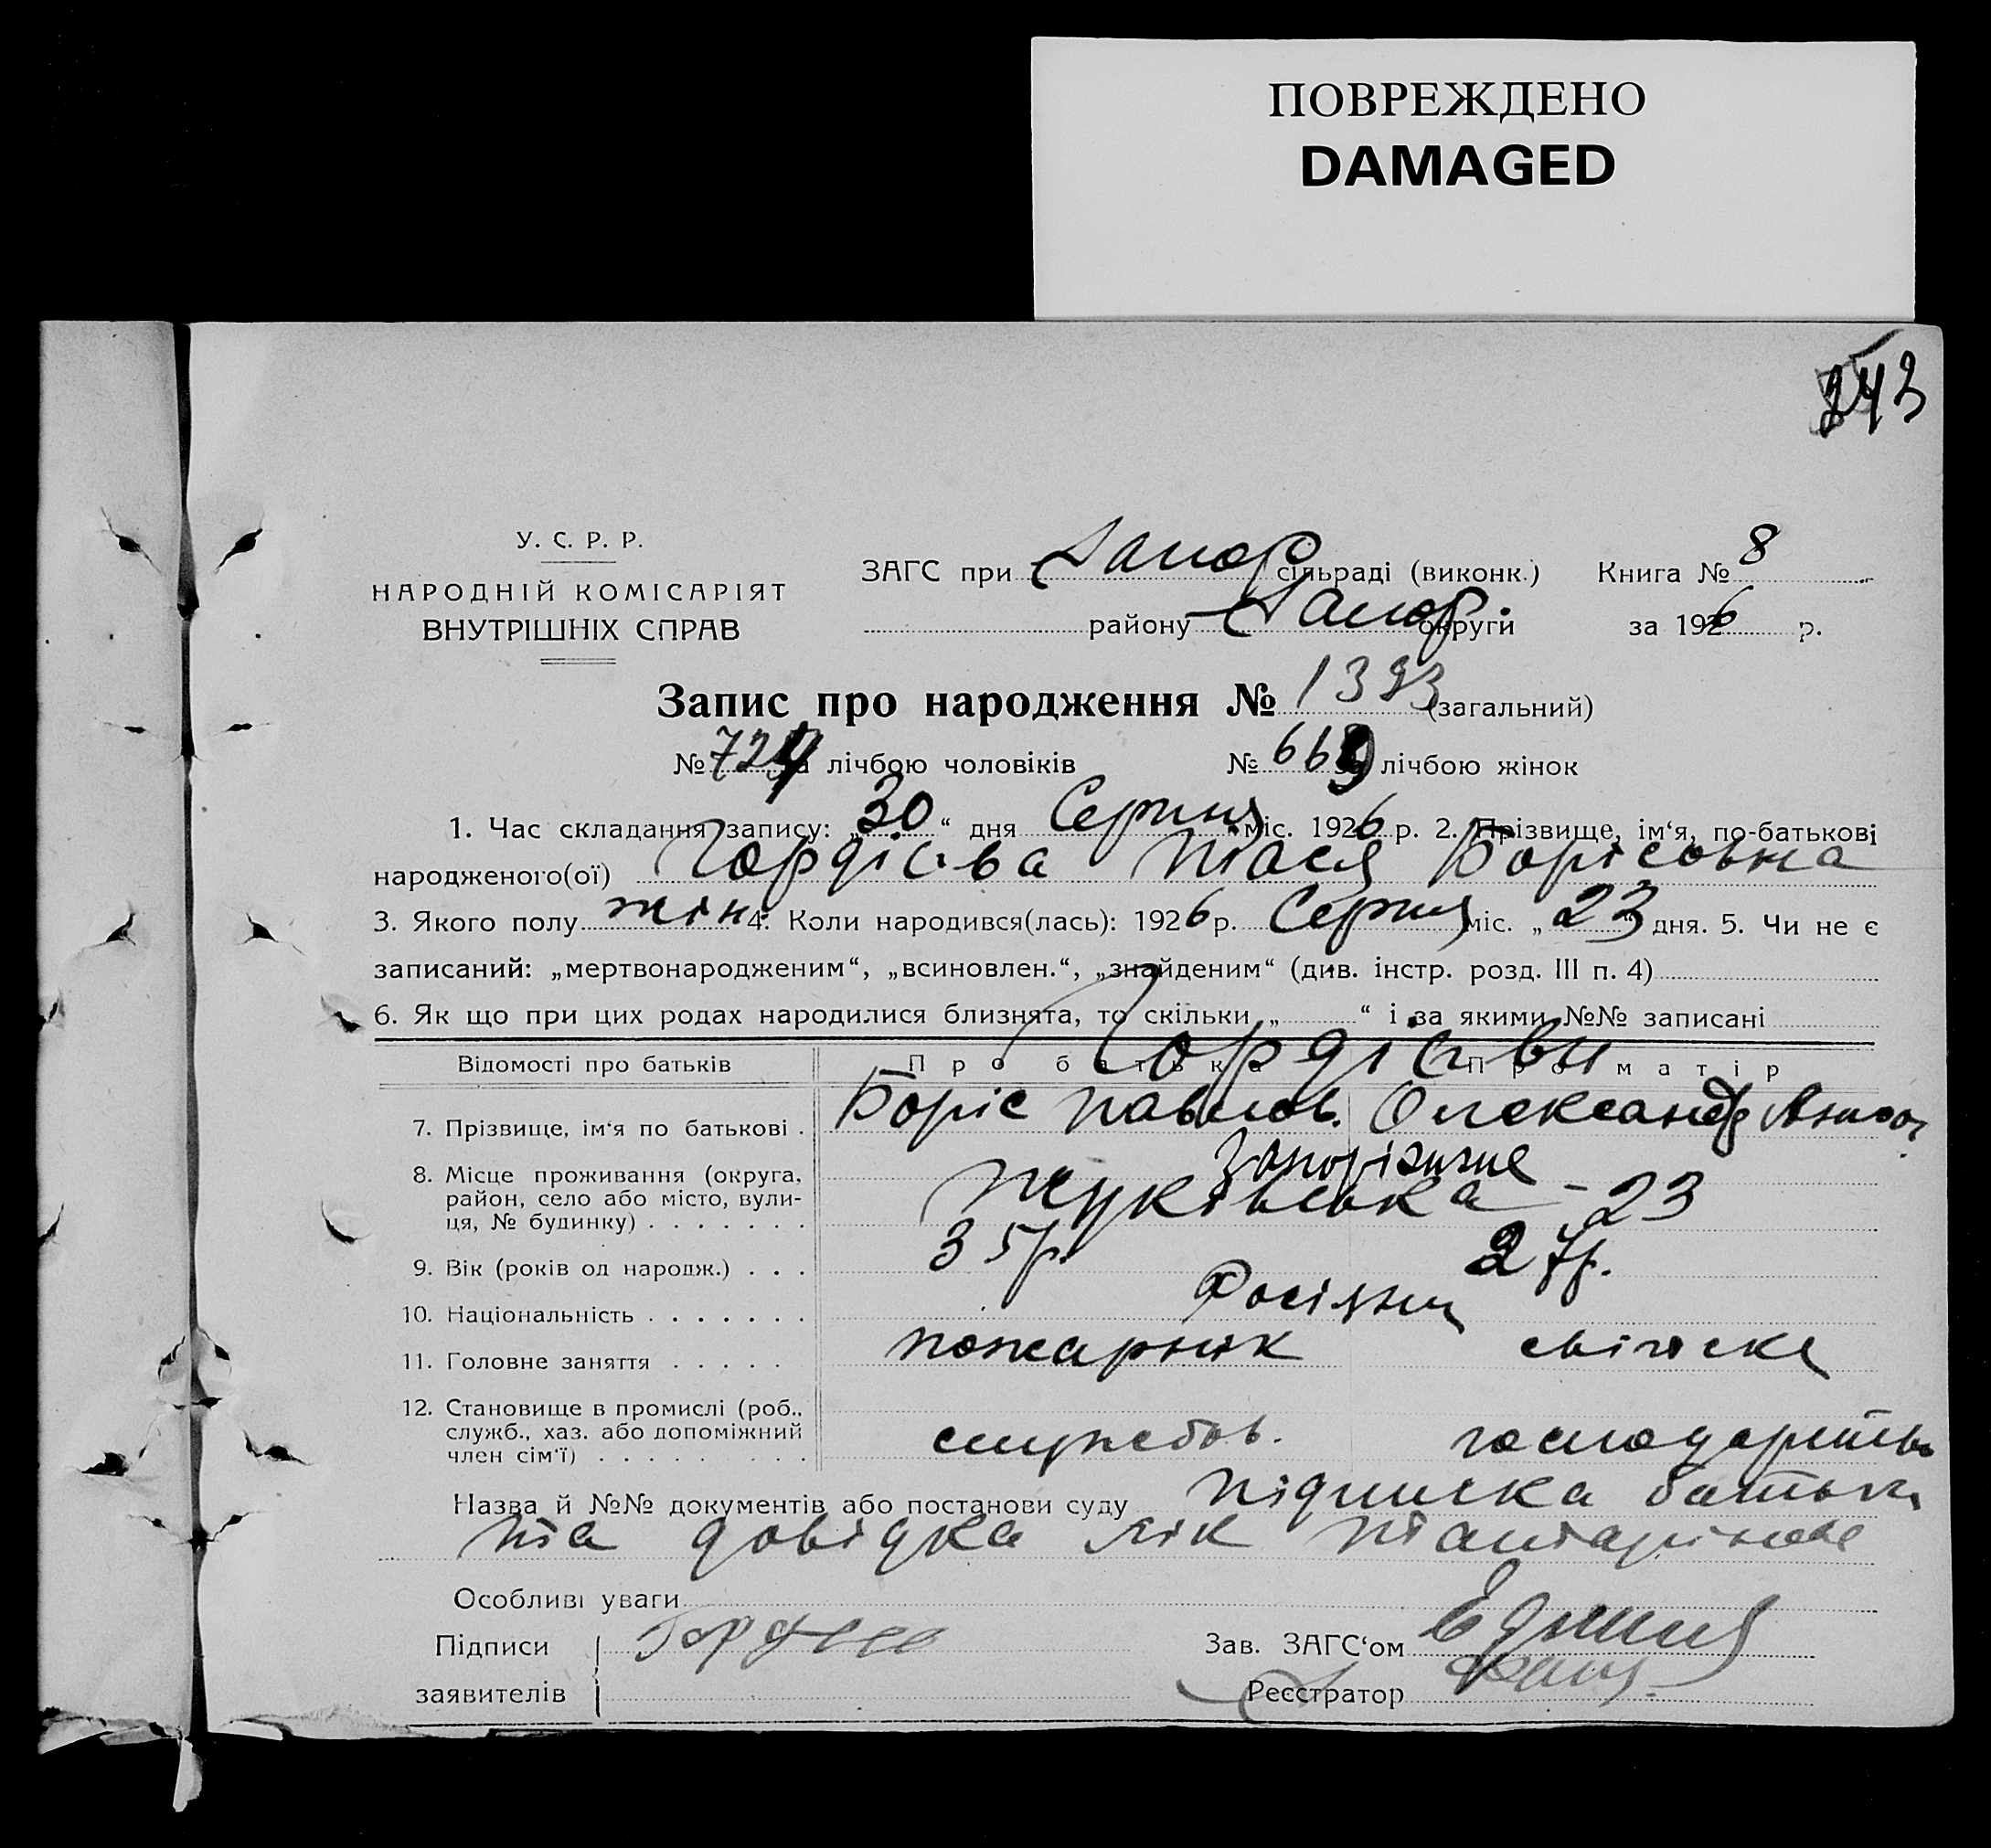 ПОВРЕЖДЕНО
DAMAGED
243
У. С. Р. Р.
НАРОДНІЙ КОМІСАРІЯТ
ВНУТРІШНІХ СПРАВ
ЗАГС при Запор сільраді (виконк.) Книга № 8
району Запор округи за 1926 р.
Запис про народження № 1393 (загальний)
№ 724 за лічбою чоловіків № 669 лічбою жінок
1. Час складання запису: „30“ дня Серпня міс. 1926 р. 2. Прізвище, ім‘я, по-батькові
народженого(ої) Гордієва Тася Борісовна
3. Якого полу жін 4. Коли народився(лась): 1926 р. Серпня міс. „23“ дня. 5. Чи не є
записаний: „мертвонародженим“, „всиновлен.“, „знайденим“ (див. інстр. розд. III п. 4)
6. Як що при цих родах народилися близнята, то скільки „ “ і за якими №№ записані
Відомості про батьків Про батька Про матір
Гордієви
7. Прізвище, ім‘я по батькові . Боріс Павлов. Олександр
8. Місце проживання (округа, район, село або місто, вулиця, № будинку) . . . . . . . Запоріжжя
Жуківська – 23
9. Вік (років од народж.) . . . 35 р. 27 р.
10. Національність . . . . . . . Росіяни
11. Головне заняття . . . . . пожарник хатне
12. Становище в промислі (роб., служб., хаз. або допоміжний член сім‘ї) . . . . . . . . службов. господарство
Назва й №№ документів або постанови суду підписка батька
та довідка лік
Особливі уваги
Підписи Гордеев Зав. ЗАГС‘ом
заявителів Реєстратор